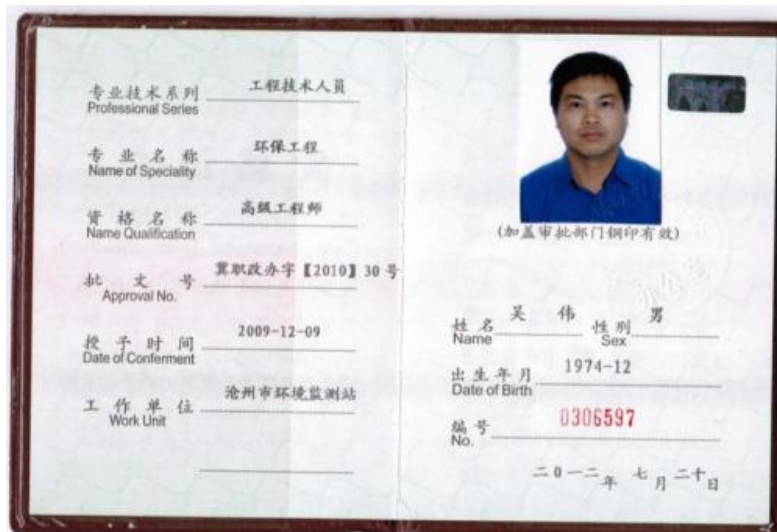 专业技术系列 工程技术人员
Professional Series
专业名称 环保工程
Name of Speciality
资格名称 高级工程师
Name Qualification
批文号 冀职改办字【2010】30号
Approval No.
授予时间 2009-12-09
Date of Conferment
工作单位 沧州市环境监测站
Work Unit
(加盖审批部门钢印有效)
姓名 吴伟 性别 男
Name Sex
出生年月 1974-12
Date of Birth
编号 0306597
No.
二0一二年 七月二十日